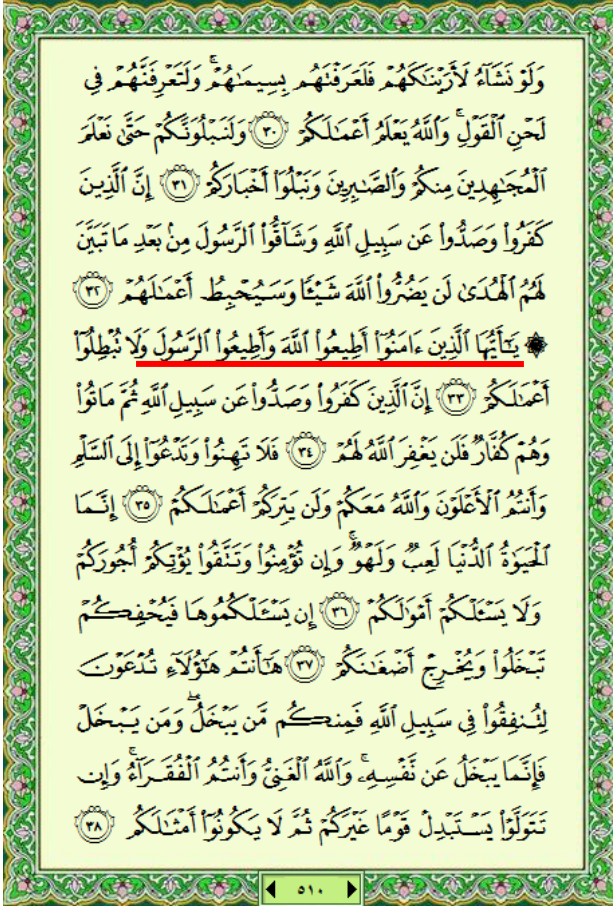 وَلَوْ نَشَآءُ لَأَرَيْنَـٰكَهُمْ فَلَعَرَفْتَهُم بِسِيمَـٰهُمْ ۚ وَلَتَعْرِفَنَّهُمْ فِى
لَحْنِ ٱلْقَوْلِ ۚ وَٱللَّهُ يَعْلَمُ أَعْمَـٰلَكُمْ ٣٠ وَلَنَبْلُوَنَّكُمْ حَتَّىٰ نَعْلَمَ
ٱلْمُجَـٰهِدِينَ مِنكُمْ وَٱلصَّـٰبِرِينَ وَنَبْلُوَا۟ أَخْبَارَكُمْ ٣١ إِنَّ ٱلَّذِينَ
كَفَرُوا۟ وَصَدُّوا۟ عَن سَبِيلِ ٱللَّهِ وَشَآقُّوا۟ ٱلرَّسُولَ مِنۢ بَعْدِ مَا تَبَيَّنَ
لَهُمُ ٱلْهُدَىٰ لَن يَضُرُّوا۟ ٱللَّهَ شَيْـًٔا وَسَيُحْبِطُ أَعْمَـٰلَهُمْ ٣٢
۞ يَـٰٓأَيُّهَا ٱلَّذِينَ ءَامَنُوٓا۟ أَطِيعُوا۟ ٱللَّهَ وَأَطِيعُوا۟ ٱلرَّسُولَ وَلَا تُبْطِلُوٓا۟
أَعْمَـٰلَكُمْ ٣٣ إِنَّ ٱلَّذِينَ كَفَرُوا۟ وَصَدُّوا۟ عَن سَبِيلِ ٱللَّهِ ثُمَّ مَاتُوا۟
وَهُمْ كُفَّارٌ فَلَن يَغْفِرَ ٱللَّهُ لَهُمْ ٣٤ فَلَا تَهِنُوا۟ وَتَدْعُوٓا۟ إِلَى ٱلسَّلْمِ
وَأَنتُمُ ٱلْأَعْلَوْنَ وَٱللَّهُ مَعَكُمْ وَلَن يَتِرَكُمْ أَعْمَـٰلَكُمْ ٣٥ إِنَّمَا
ٱلْحَيَوٰةُ ٱلدُّنْيَا لَعِبٌ وَلَهْوٌ ۚ وَإِن تُؤْمِنُوا۟ وَتَتَّقُوا۟ يُؤْتِكُمْ أُجُورَكُمْ
وَلَا يَسْـَٔلْكُمْ أَمْوَٰلَكُمْ ٣٦ إِن يَسْـَٔلْكُمُوهَا فَيُحْفِكُمْ
تَبْخَلُوا۟ وَيُخْرِجْ أَضْغَـٰنَكُمْ ٣٧ هَـٰٓأَنتُمْ هَـٰٓؤُلَآءِ تُدْعَوْنَ
لِتُنفِقُوا۟ فِى سَبِيلِ ٱللَّهِ فَمِنكُم مَّن يَبْخَلُ ۖ وَمَن يَبْخَلْ
فَإِنَّمَا يَبْخَلُ عَن نَّفْسِهِۦ ۚ وَٱللَّهُ ٱلْغَنِىُّ وَأَنتُمُ ٱلْفُقَرَآءُ ۚ وَإِن
تَتَوَلَّوْا۟ يَسْتَبْدِلْ قَوْمًا غَيْرَكُمْ ثُمَّ لَا يَكُونُوٓا۟ أَمْثَـٰلَكُم ٣٨
٥١٠